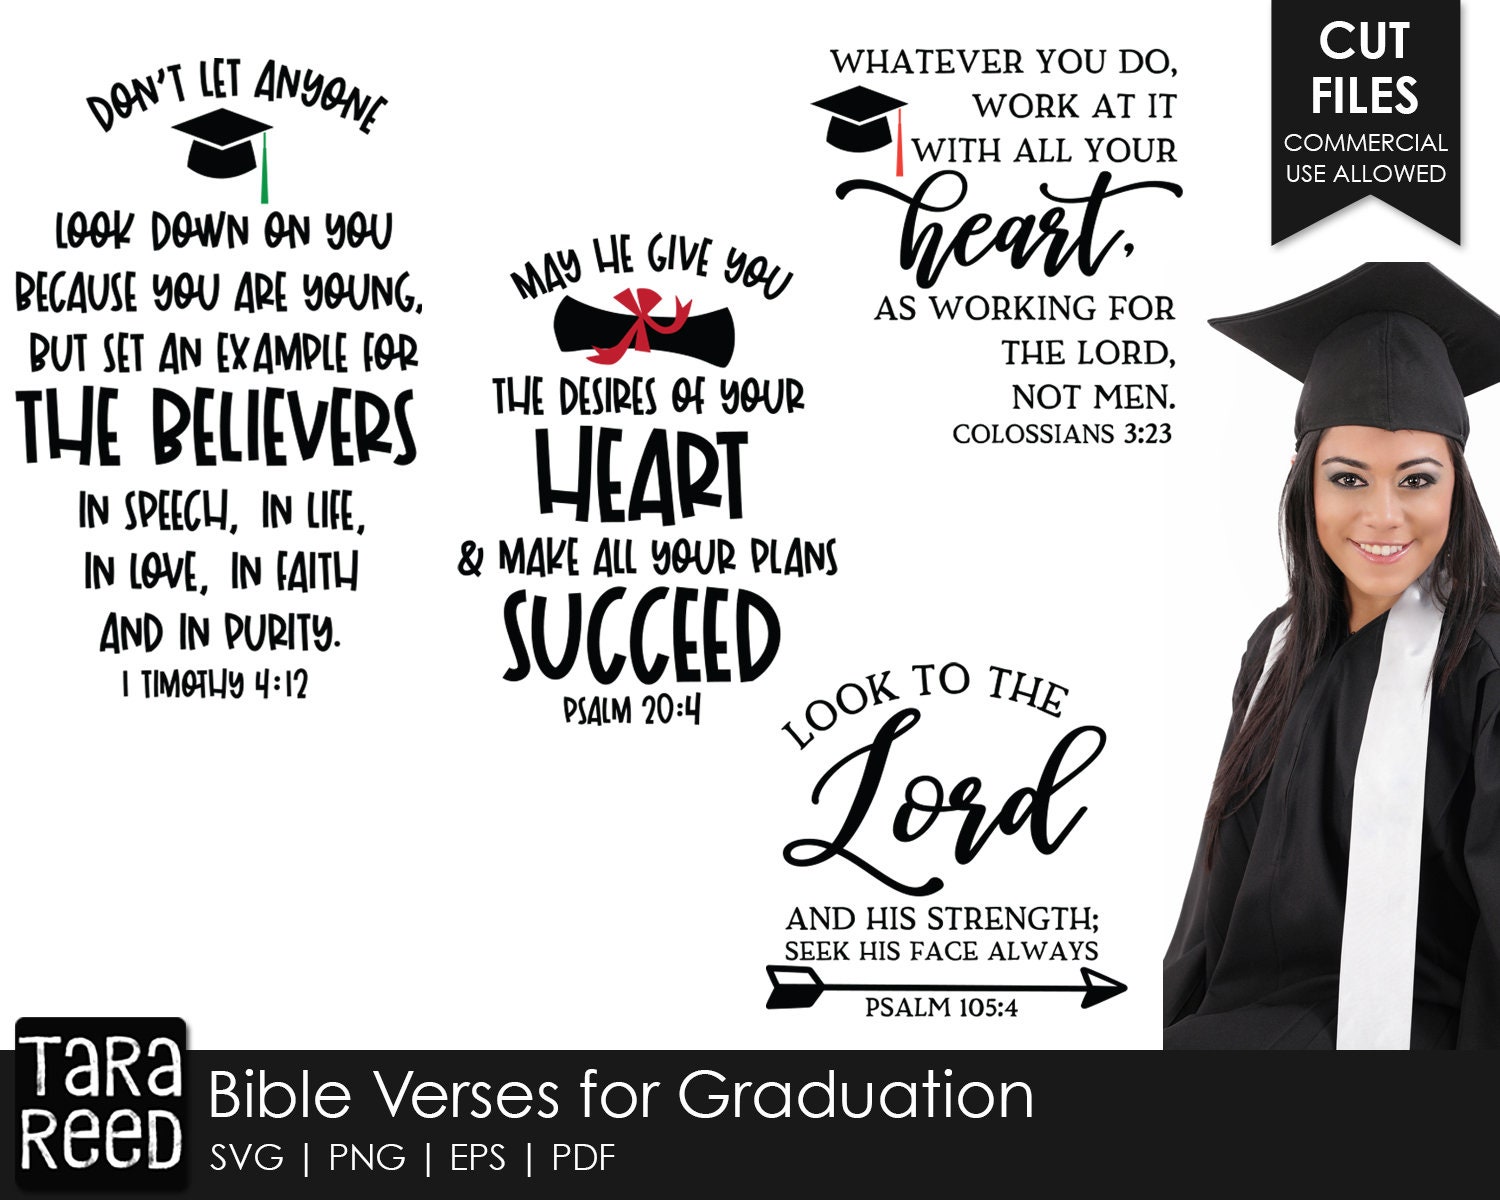 DON'T LET ANYONE
LOOK DOWN ON YOU
BECAUSE YOU ARE YOUNG,
BUT SET AN EXAMPLE FOR
THE BELIEVERS
IN SPEECH, IN LIFE,
IN LOVE, IN FAITH
AND IN PURITY.
1 TIMOTHY 4:12
MAY HE GIVE YOU
THE DESIRES OF YOUR
HEART
& MAKE ALL YOUR PLANS
SUCCEED
PSALM 20:4
WHATEVER YOU DO,
WORK AT IT
WITH ALL YOUR
heart,
AS WORKING FOR
THE LORD,
NOT MEN.
COLOSSIANS 3:23
LOOK TO THE
Lord
AND HIS STRENGTH;
SEEK HIS FACE ALWAYS
PSALM 105:4
CUT
FILES
COMMERCIAL
USE ALLOWED
TARA
REED
Bible Verses for Graduation
SVG | PNG | EPS | PDF